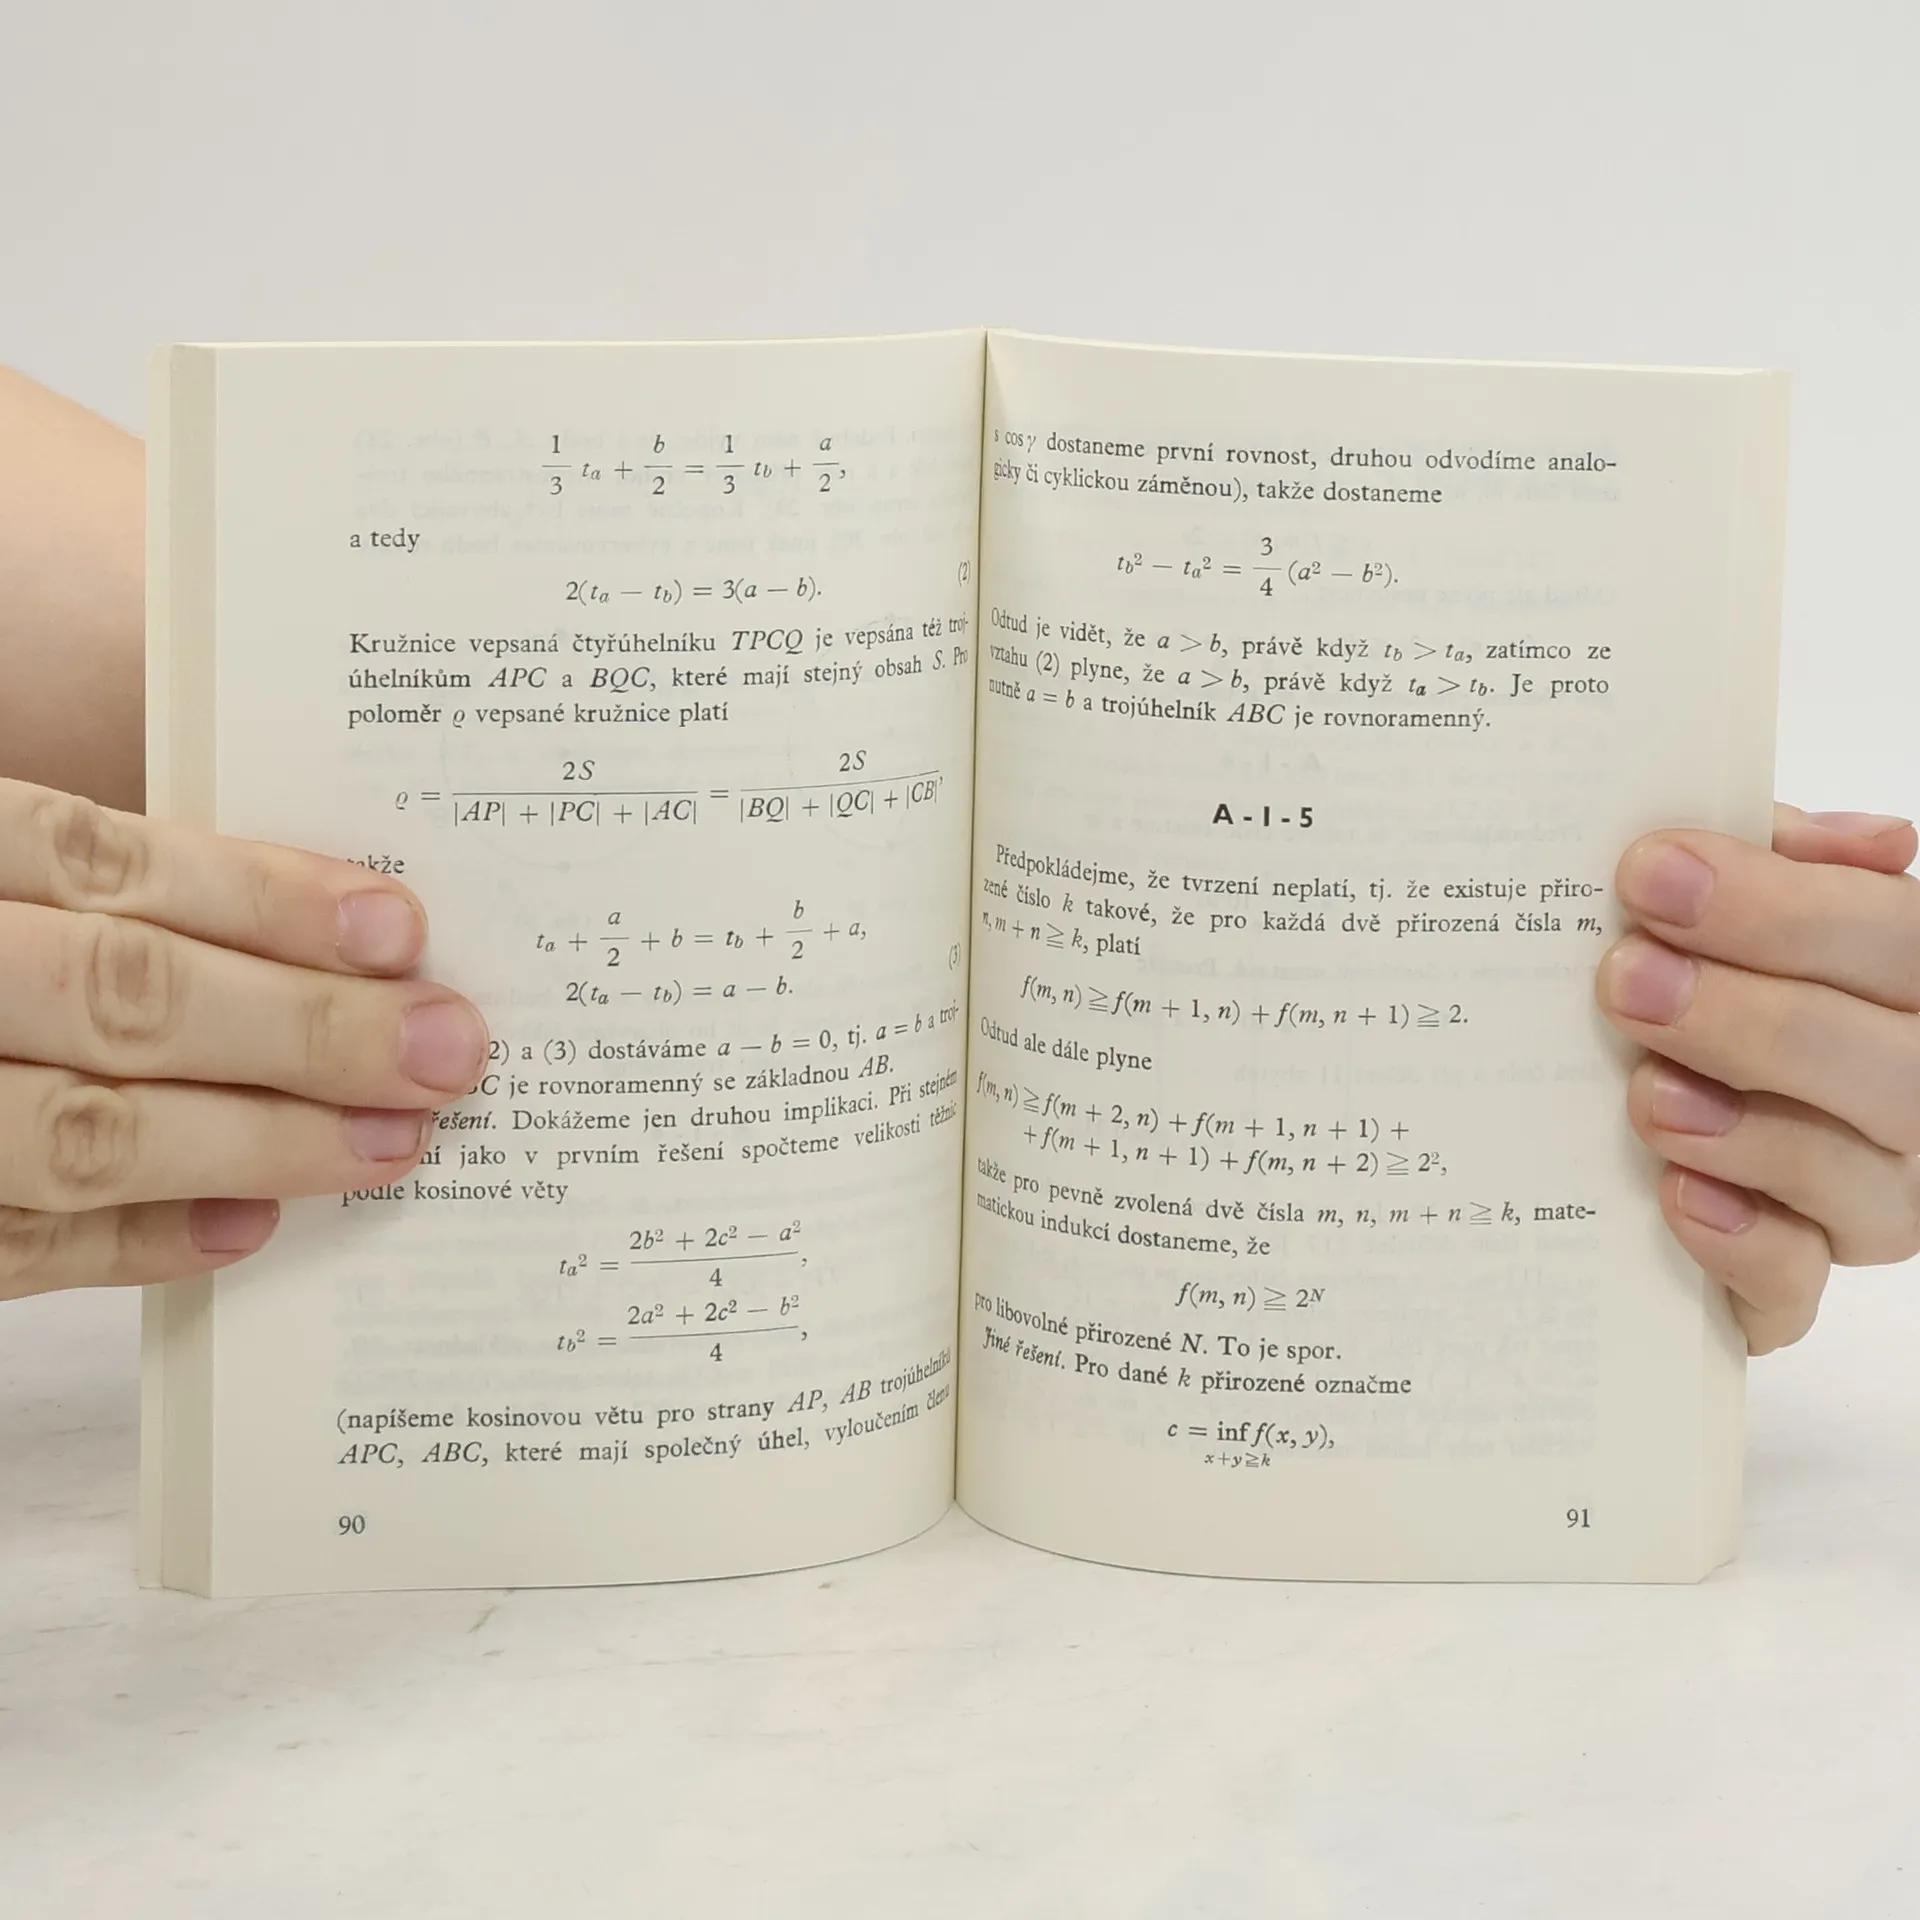 1/3 t_a + b/2 = 1/3 t_b + a/2,
a tedy
2(t_a — t_b) = 3(a — b). (2)
Kružnice vepsaná čtyřúhelníku TPCQ je vepsána též troj-
úhelníkům APC a BQC, které mají stejný obsah S. Pro
poloměr ϱ vepsané kružnice platí
ϱ = 2S / (|AP| + |PC| + |AC|) = 2S / (|BQ| + |QC| + |CB|),
t_a + a/2 + b = t_b + b/2 + a,
2(t_a — t_b) = a — b. (3)
a (3) dostáváme a — b = 0, tj. a = b a troj-
je rovnoramenný se základnou AB.
Dokážeme jen druhou implikaci. Při stejném
jako v prvním řešení spočteme velikosti těžnic
podle kosinové věty
t_a² = (2b² + 2c² — a²) / 4,
t_b² = (2a² + 2c² — b²) / 4,
(napíšeme kosinovou větu pro strany AP, AB trojúhelníků
APC, ABC, které mají společný úhel, vyloučením členu
90
s cos γ dostaneme první rovnost, druhou odvodíme analo-
gicky či cyklickou záměnou), takže dostaneme
t_b² — t_a² = 3/4 (a² — b²).
Odtud je vidět, že a > b, právě když t_b > t_a, zatímco ze
vztahu (2) plyne, že a > b, právě když t_a > t_b. Je proto
nutně a = b a trojúhelník ABC je rovnoramenný.
A - I - 5
Předpokládejme, že tvrzení neplatí, tj. že existuje přiro-
zené číslo k takové, že pro každá dvě přirozená čísla m,
n, m + n ≧ k, platí
f(m, n) ≧ f(m + 1, n) + f(m, n + 1) ≧ 2.
Odtud ale dále plyne
f(m, n) ≧ f(m + 2, n) + f(m + 1, n + 1) +
+ f(m + 1, n + 1) + f(m, n + 2) ≧ 2²,
takže pro pevně zvolená dvě čísla m, n, m + n ≧ k, mate-
matickou indukcí dostaneme, že
f(m, n) ≧ 2ᴺ
pro libovolné přirozené N. To je spor.
Jiné řešení. Pro dané k přirozené označme
c = inf f(x, y),
x+y≧k
91